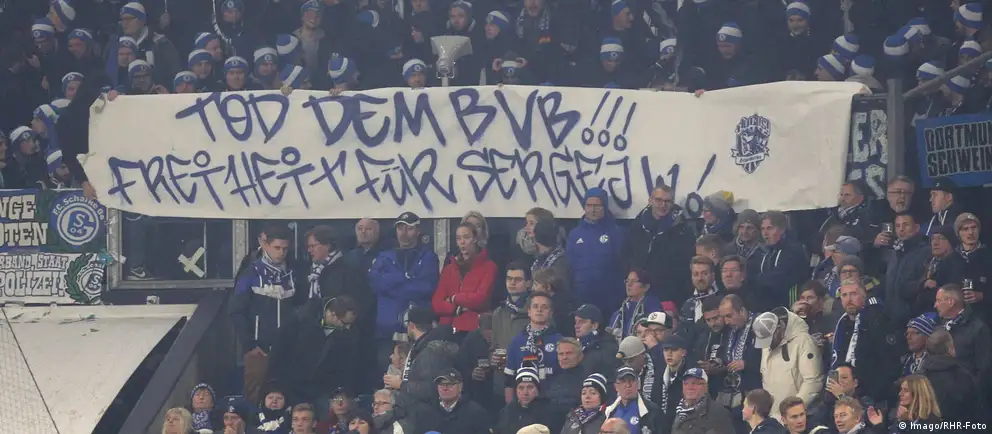 TOD DEM BVB!!!
FREiHEiT FÜR SERGEJ W.!
FC Schalke 04
S04
DORTMUND
SCHWEIN
NGE
OTEN
RBAND, STAAT
POLIZEI!
ER
© Imago/RHR-Foto